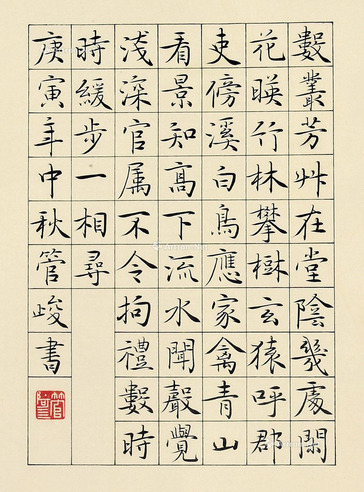 數叢芳艸在堂陰幾處閑
花暎竹林攀樹玄猿呼郡
吏傍溪白鳥應家禽青山
看景知高下流水聞聲覺
淺深官属不令拘禮數時
時緩步一相尋
庚寅年中秋管峻書